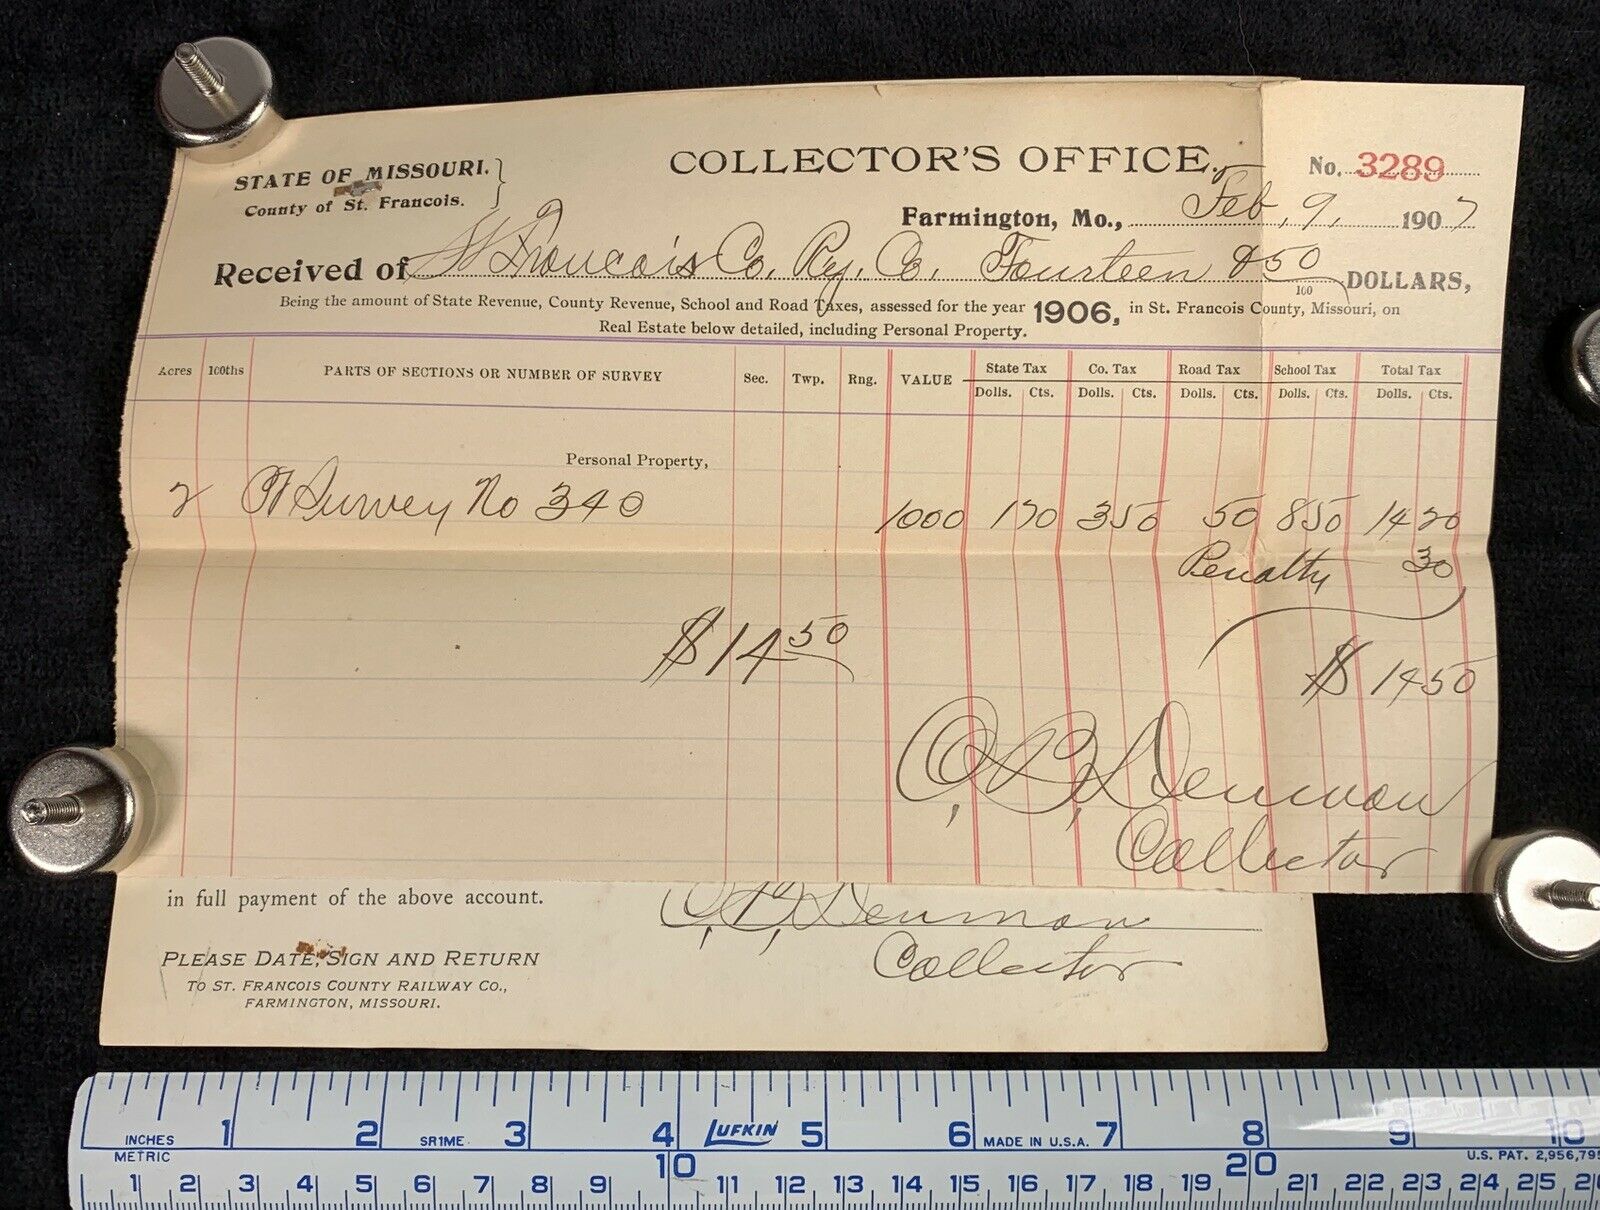 STATE OF MISSOURI.
County of St. Francois.
COLLECTOR'S OFFICE.
No. 3289
Farmington, Mo., Feb, 9, 1907
Received of St Francois Co. Ry. Co. Fourteen & 50/100 DOLLARS,
Being the amount of State Revenue, County Revenue, School and Road Taxes, assessed for the year 1906, in St. Francois County, Missouri, on
Real Estate below detailed, including Personal Property.
Acres 100ths PARTS OF SECTIONS OR NUMBER OF SURVEY Sec. Twp. Rng. VALUE State Tax Co. Tax Road Tax School Tax Total Tax
Dolls. Cts. Dolls. Cts. Dolls. Cts. Dolls. Cts. Dolls. Cts.
Personal Property,
2 Pt Survey No 340 1000 1 70 3 50 50 8 50 14 20
Penalty 30
$14 50 $14 50
O, B, Denman
Collector
in full payment of the above account. O, B, Denman
Collector
PLEASE DATE, SIGN AND RETURN
TO ST. FRANCOIS COUNTY RAILWAY CO.,
FARMINGTON, MISSOURI.
INCHES 1 2 SR1ME 3 4 LUFKIN 5 6 MADE IN U.S.A. 7 8 9 10
METRIC 10 20 U.S. PAT. 2,956,795
1 2 3 4 5 6 7 8 9 11 12 13 14 15 16 17 18 19 21 22 23 24 25